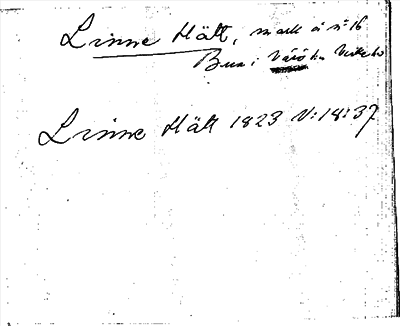 Linne Hätt, mark å nº 16
Bua i Värö sn
Linne Hätt 1823 V:18:37